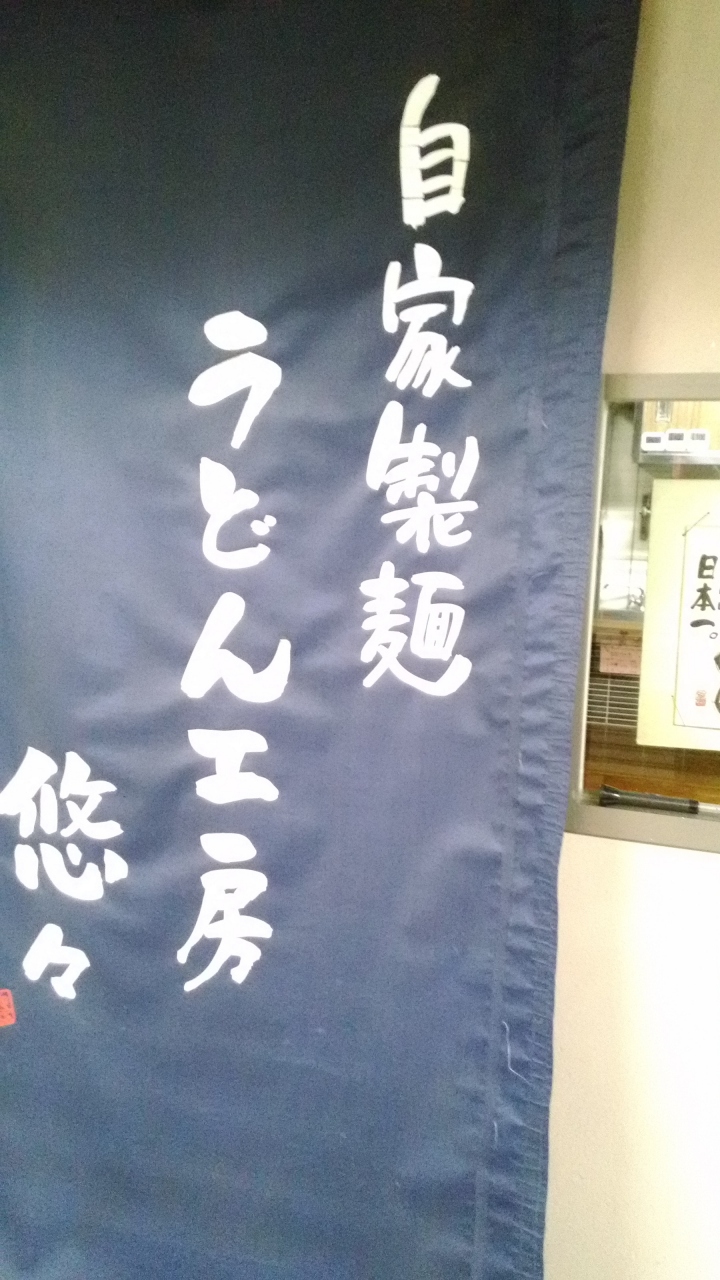 自家製麺
うどん工房
悠々
日本一。